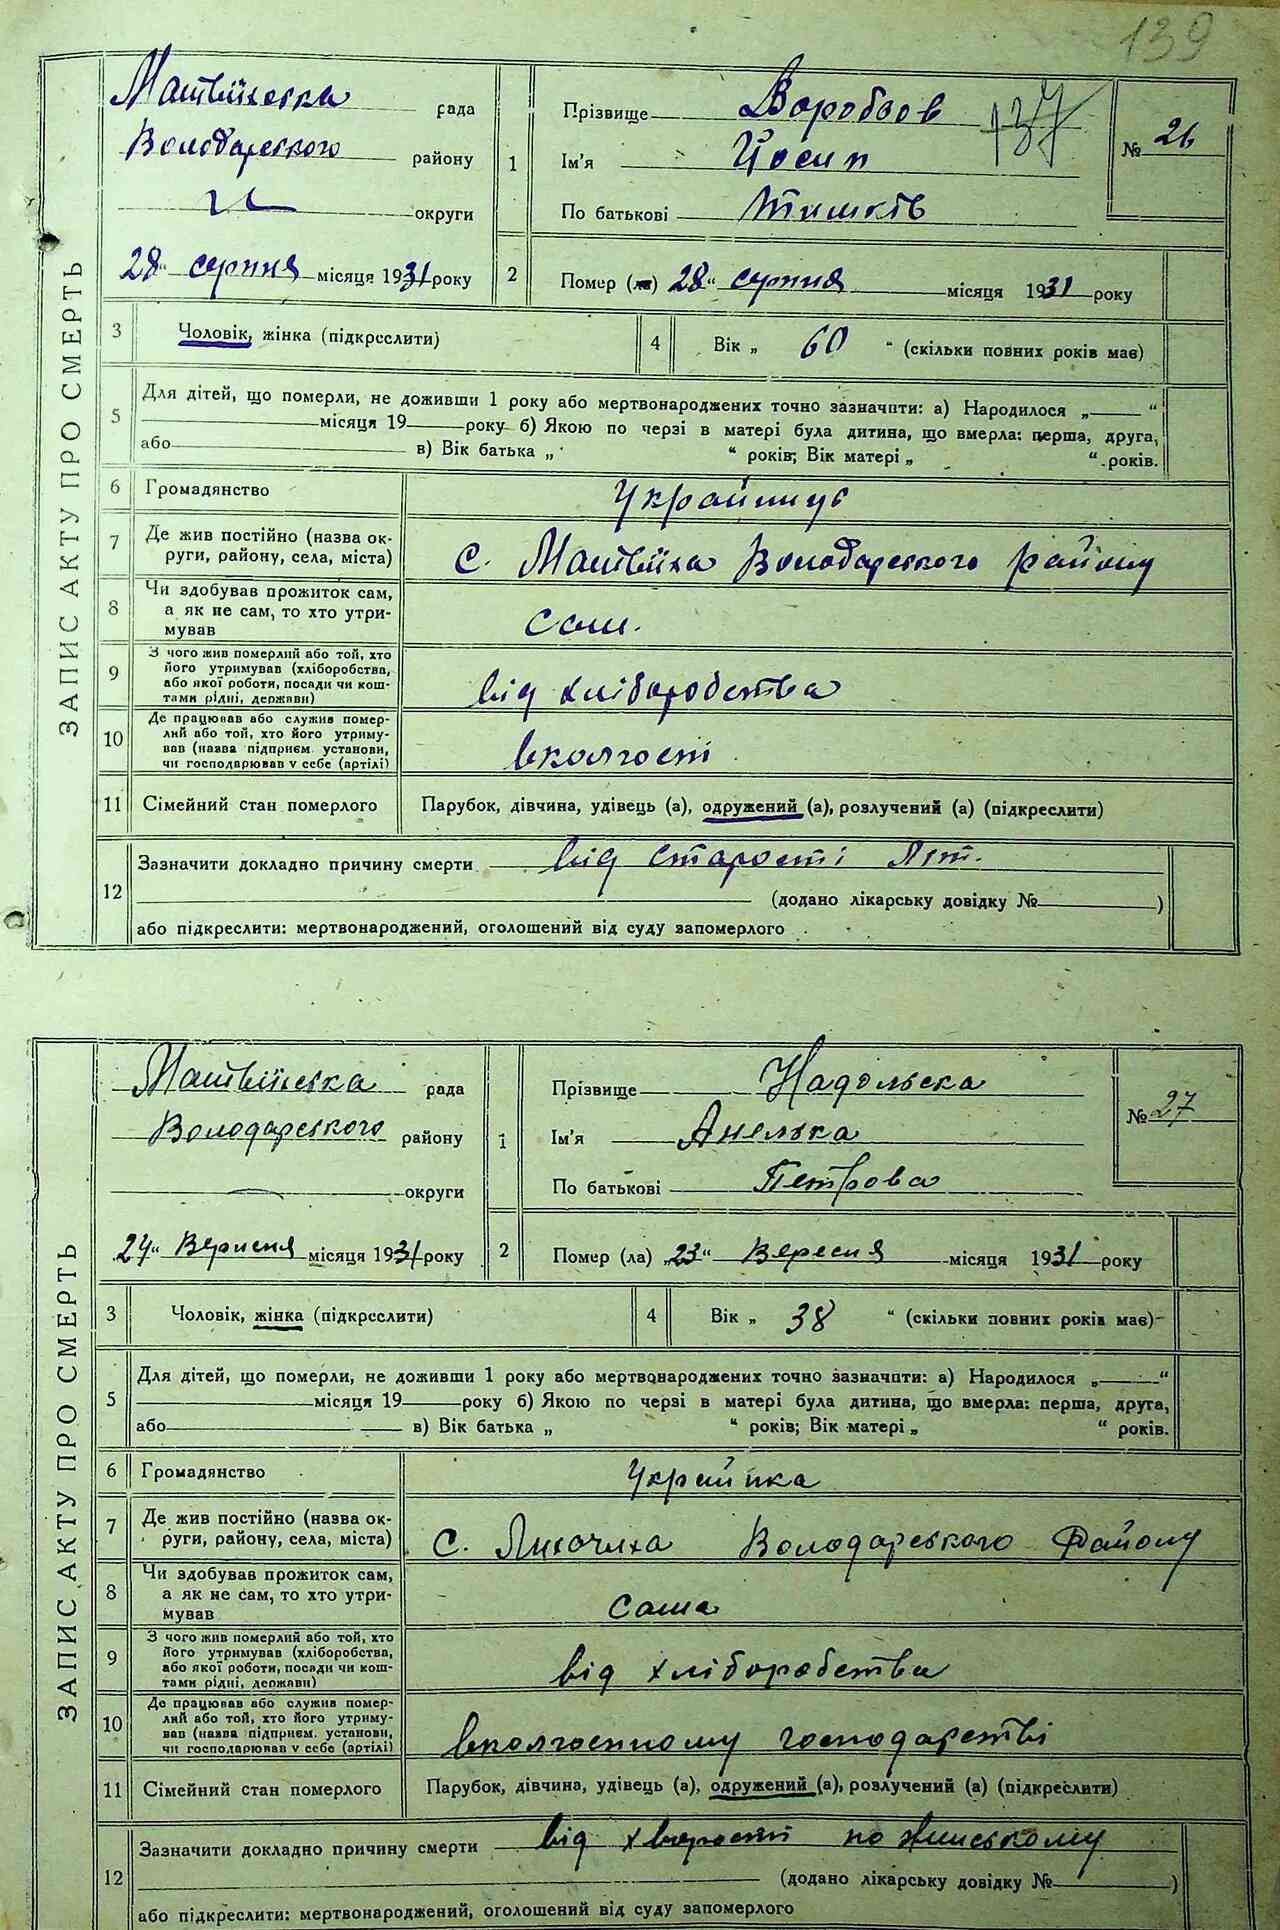 139
ЗАПИС АКТУ ПРО СМЕРТЬ
Матвіївська рада
Володарського району
округи
28 серпня місяця 1931 року
1
Прізвище Воробйов
137
Ім'я Йосип
По батькові
№ 26
2
Помер (ла) 28 " серпня місяця 1931 року
3 Чоловік, жінка (підкреслити)
4 Вік „ 60 " (скільки повних років має)
5 Для дітей, що померли, не доживши 1 року або мертвонароджених точно зазначити: а) Народилося „ "
місяця 19 року б) Якою по черзі в матері була дитина, що вмерла: перша, друга,
або в) Вік батька „ " років; Вік матері „ " років.
6 Громадянство Українує
7 Де жив постійно (назва ок-
руги, району, села, міста) с. Матвіїха Володарського району
8 Чи здобував прожиток сам,
а як не сам, то хто утри-
мував сам.
9 З чого жив померлий або той, хто
його утримував (хліборобства,
або якої роботи, посади чи кош-
тами рідні, держави) від хліборобства
10 Де працював або служив помер-
лий або той, хто його утриму-
вав (назва підприєм. установи,
чи господарював у себе (артілі) вколгості
11 Сімейний стан померлого Парубок, дівчина, удівець (а), одружений (а), розлучений (а) (підкреслити)
12 Зазначити докладно причину смерти від старості літ.
(додано лікарську довідку № )
або підкреслити: мертвонароджений, оголошений від суду запомерлого
ЗАПИС АКТУ ПРО СМЕРТЬ
Матвіївська рада
Володарського району
округи
24 " Вересня місяця 1931 року
1
Прізвище Надольска
Ім'я Анелька
По батькові Петрова
№ 27
2
Помер (ла) „23" Вересня місяця 1931 року
3 Чоловік, жінка (підкреслити)
4 Вік „ 38 " (скільки повних років має)
5 Для дітей, що померли, не доживши 1 року або мертвонароджених точно зазначити: а) Народилося „ "
місяця 19 року б) Якою по черзі в матері була дитина, що вмерла: перша, друга,
або в) Вік батька „ " років; Вік матері „ " років.
6 Громадянство Українка
7 Де жив постійно (назва ок-
руги, району, села, міста) с. Володарського Району
8 Чи здобував прожиток сам,
а як не сам, то хто утри-
мував сама
9 З чого жив померлий або той, хто
його утримував (хліборобства,
або якої роботи, посади чи кош-
тами рідні, держави) від хліборобства
10 Де працював або служив помер-
лий або той, хто його утриму-
вав (назва підприєм. установи,
чи господарював у себе (артілі) вколгоспному господарстві
11 Сімейний стан померлого Парубок, дівчина, удівець (а), одружений (а), розлучений (а) (підкреслити)
12 Зазначити докладно причину смерти від хворості по жінському
(додано лікарську довідку № )
або підкреслити: мертвонароджений, оголошений від суду запомерлого